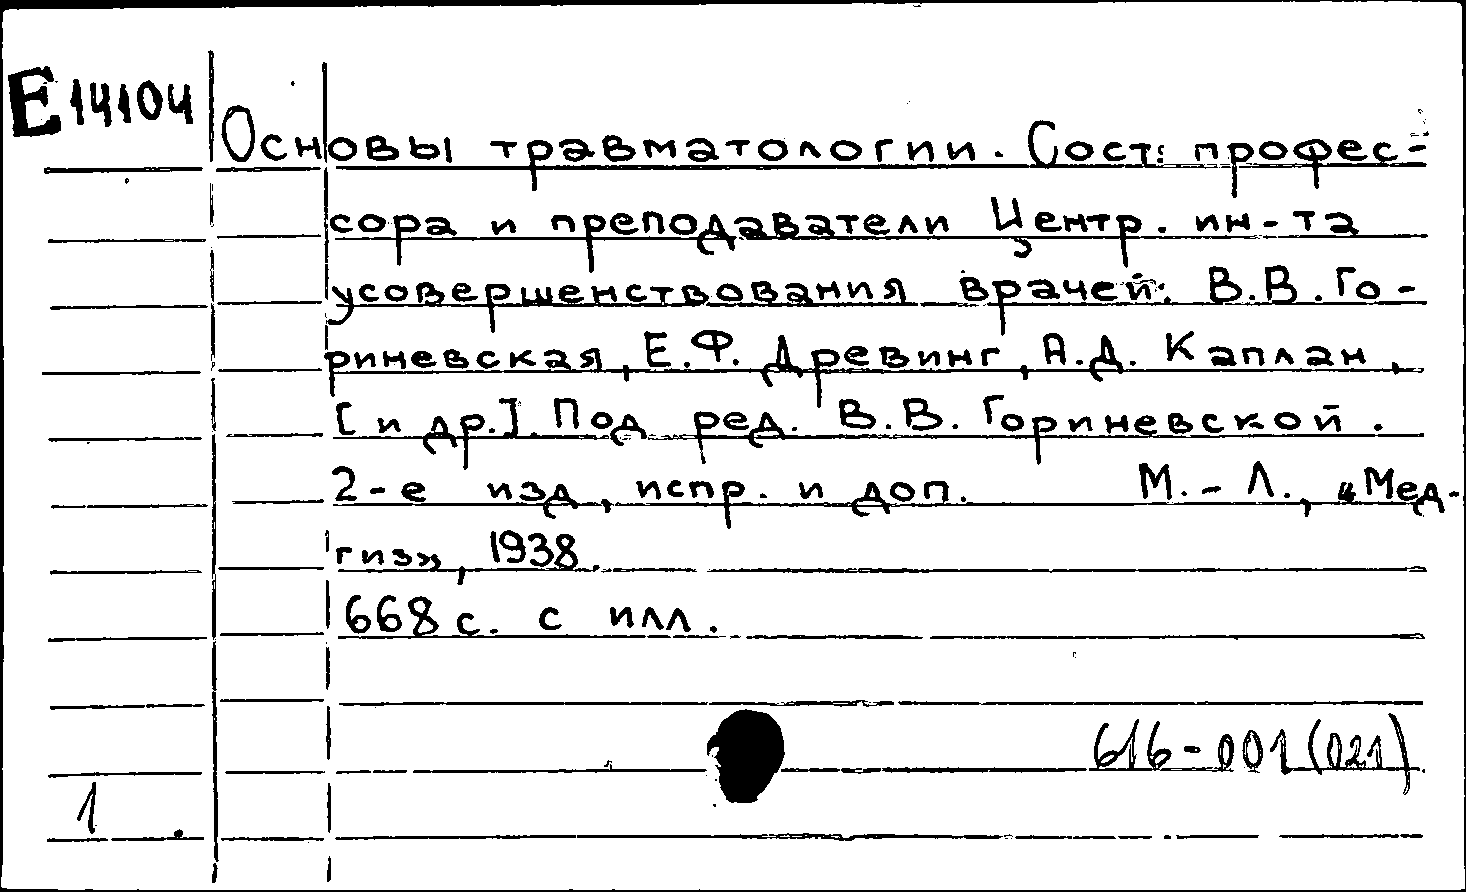 Е14104
Основы травматологии. Сост: профес-
сора и преподаватели Центр. ин-та
усовершенствования врачей: В.В. Го-
риневская, Е.Ф. Древинг, А.Д. Каплан,
[и др.]. Под ред. В.В. Гориневской.
2-е изд, испр. и доп. М. - Л., «Мед-
гиз», 1938.
668 с. с илл.
616-001(021)
1